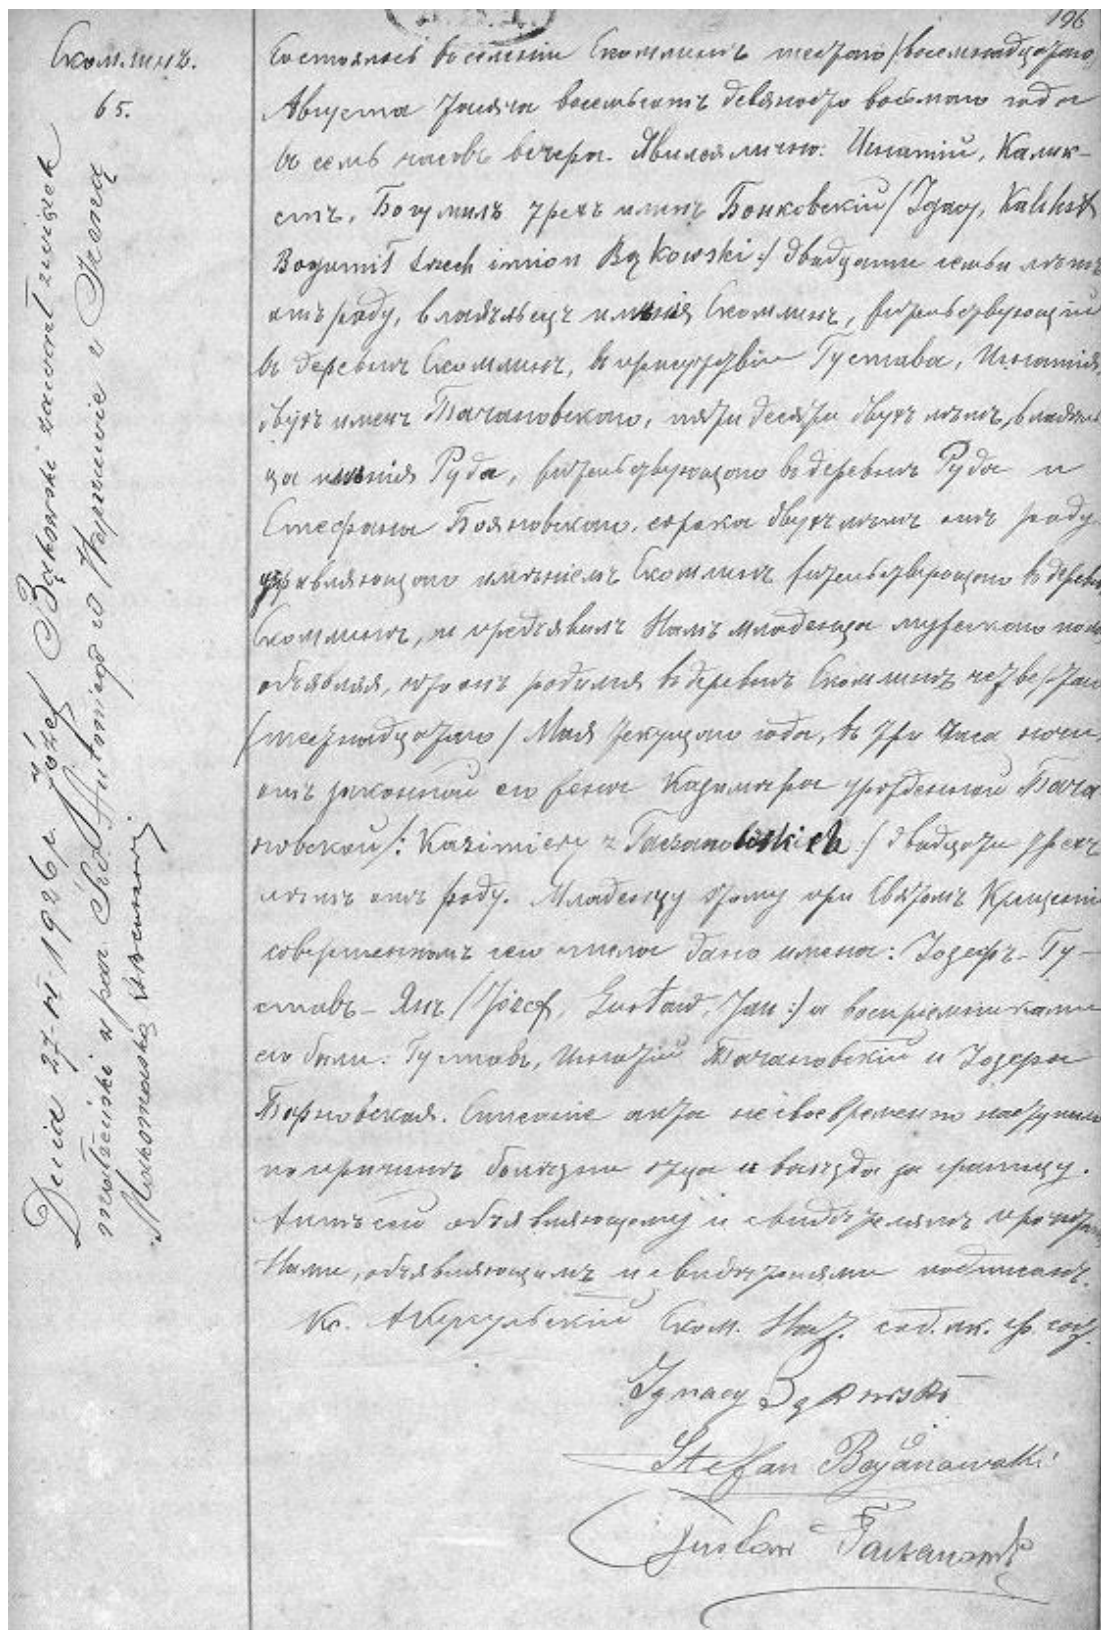 196
Скомлинъ.
65.
Состоялось въ селеніи Скомлинъ шестаго /восемнадцатаго/
Августа тысяча восемьсотъ девяносто восьмаго года
въ семь часовъ вечера. Явился лично: Игнатій, Каликстъ, Богумилъ трехъ именъ Бонковскій /Ignacy, Kalikst
Bogumił trzech imion Bąkowski:/ двадцати семи лѣтъ
отъ роду, владѣлецъ имѣнія Скомлинъ, жительствующій
въ деревнѣ Скомлинъ, въ присутствіи Густава, Игнатія,
двухъ именъ Тачановскаго, пятидесяти двухъ лѣтъ, владѣль
ца имѣнія Руда, жительствующаго въ деревнѣ Руда и
Стефана Бояновскаго, сорока двухъ лѣтъ отъ роду
управляющаго имѣніемъ Скомлинъ жительствующаго въ деревнѣ
Скомлинъ, и предъявилъ Намъ младенца мужескаго пола
объявляя, что онъ родился въ деревнѣ Скомлинъ четвертаго
/шестнадцатаго/ Мая текущаго года, въ три часа ночи,
отъ законной его жены Казимиры урожденной Тача
новской /: Kazimiery z Taczanowskich :/ двадцати трехъ
лѣтъ отъ роду. Младенцу этому при Святомъ Крещеніи
совершенномъ сего числа дано имена: Іозефъ - Гу-
ставъ - Янъ /Józef, Gustaw, Jan :/ а воспріемниками
его были: Густавъ, Игнатій Тачановскій и Іозефа
Скомлинъ. Списаніе акта несвоевременно наступило
по причинѣ болѣзни отца и выѣзда за границу.
Актъ сей объявляющему и свидѣтелямъ прочитанъ
Нами, объявляющимъ и свидѣтелями подписанъ.
Кс. Ском. Наст. сод. ак. гр. сост.
Ignacy Bąkowski
Stefan Bojanowski
Gustaw Taczanowski
Dnia 27-VI-1926 r. Józef Bąkowski zawarł związek
małżeński w par Św. Antoniego w Warszawie z Ireną
Mohomaską